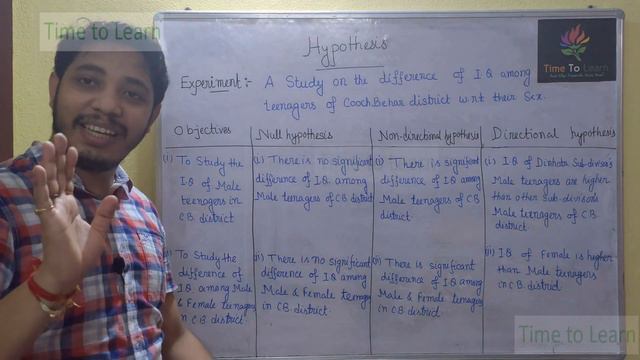 Time to Learn
Hypothesis
Time To Learn
Experiment:- A Study on the difference of I.Q among
teenagers of Cooch Behar district w.r.t their Sex.
Objectives
(i) To Study the
I.Q of Male
teenagers in
C.B district
(ii) To Study the
difference of
I.Q among Male
& Female teenagers
in C.B district.
Null hypothesis
(i) There is no significant
difference of I.Q. among
Male teenagers of CB district
(ii) There is no significant
difference of I.Q among
Male & Female teenagers
in C.B district.
Non-directional hypothesis
(i) There is significant
difference of I.Q among
Male teenagers of CB
district.
(ii) There is significant
difference of I.Q among
Male & Female teenagers
in CB district.
Directional hypothesis
(i) I.Q of Dinhata Sub-division's
Male teenagers are higher
than other Sub-division's
Male teenagers of C.B.
district.
(ii) I.Q of Female is higher
than Male teenagers
in C.B district
Time to Learn